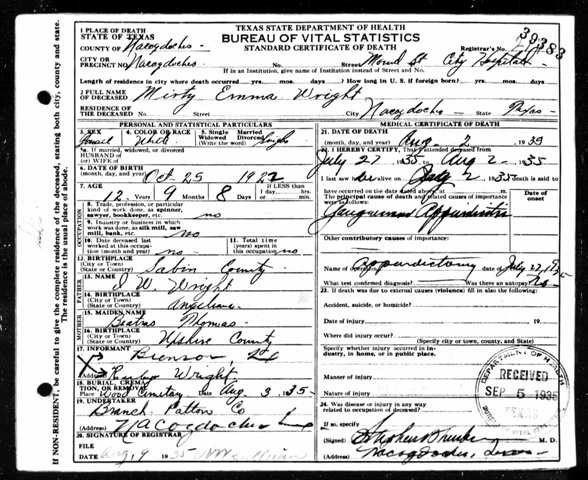 TEXAS STATE DEPARTMENT OF HEALTH
BUREAU OF VITAL STATISTICS
STANDARD CERTIFICATE OF DEATH
39383
1 PLACE OF DEATH
STATE OF TEXAS
COUNTY OF Nacogdoches
CITY OR PRECINCT NO. Nacogdoches No. Street Mound St City Hospital Registrar's No.
If in an Institution, give name of Institution instead of Street and No.
Length of residence in city where death occurred yrs. mos. days. How long in U. S. if foreign born? yrs. mos. days.
2 FULL NAME OF DECEASED Emma Wright
RESIDENCE OF THE DECEASED No. Street City Nacogdoches State Texas
PERSONAL AND STATISTICAL PARTICULARS
3. SEX 4. COLOR OR RACE White 5. Single Married Widowed Divorced (Write the word) Single
5a. If married, widowed, or divorced HUSBAND OF (or) WIFE OF
6. DATE OF BIRTH (month, day, and year) Oct 25 1922
7. AGE 12 Years 9 Months 8 Days If LESS than 1 day, hrs. min.
OCCUPATION
8. Trade, profession, or particular kind of work done, as spinner, sawyer, bookkeeper, etc. no
9. Industry or business in which work was done, as silk mill, saw mill, bank, etc. no
10. Date deceased last worked at this occupation (month and year) no 11. Total time (years) spent in this occupation no
12. BIRTHPLACE (City or Town) (State or Country) Sabin County
FATHER
13. NAME J W. Wright
14. BIRTHPLACE (City or Town) (State or Country)
MOTHER
15. MAIDEN NAME Thomas
16. BIRTHPLACE (City or Town) (State or Country) Upshire County
17. INFORMANT
Address Wright
18. BURIAL, CREMATION, OR REMOVAL
Place Cemetary Date Aug 3 1935
19. UNDERTAKER Branch Patton Co
Address Nacogdoches
20. SIGNATURE OF REGISTRAR
FILE DATE Aug 9 1935
MEDICAL CERTIFICATE OF DEATH
21. DATE OF DEATH (month, day, and year) Aug 2 1935
22. I HEREBY CERTIFY, That I attended deceased from
July 27 1935 to Aug 2 1935
I last saw alive on 2 1935 Death is said to
have occurred on the date stated above, at m.
The principal cause of death and related causes of importance were as follows: Date of onset
Other contributory causes of importance:
Name of operation date of July 27, 1935
What test confirmed diagnosis? Was there an autopsy? No
23. If death was due to external causes (violence) fill in also the following:
Accident, suicide, or homicide?
Date of injury 19
Where did injury occur?
(Specify city or town, county, and State)
Specify whether injury occurred in industry, in home, or in public place.
Manner of injury
Nature of injury
24. Was disease or injury in any way related to occupation of deceased?
If so, specify
(Signed) M. D.
Nacogdoches, Texas
DEPARTMENT OF HEALTH
RECEIVED
SEP 5 1935
TEXAS
IF NON-RESIDENT, be careful to give the complete residence of the deceased, stating both city, county and state. The residence is the usual place of abode.